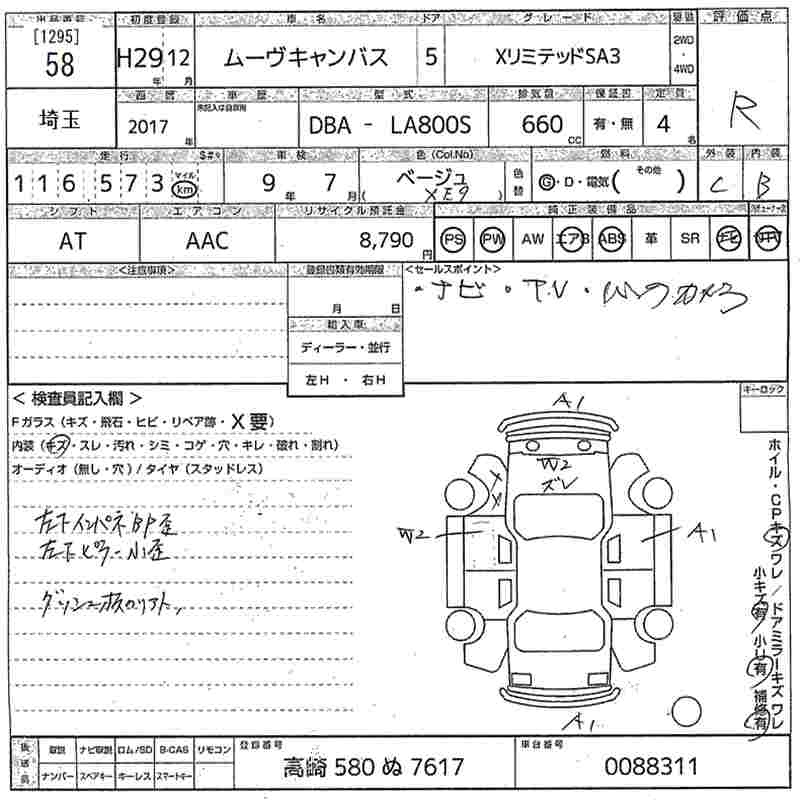 出品番号 初度登録 車名 ドア グレード 駆動 評価点
[1295]
58 H29年 12月 ムーヴキャンバス 5 XリミテッドSA3 2WD・4WD R
埼玉 西暦 車歴 型式 排気量 保証書 定員
2017年 未記入は自家用 DBA - LA800S 660cc 有・無 4名
走行 S#* 車検 色(Col.No) 燃料 外装 内装
116573 マイル km 9年 7月 ベージュ (XE9) 色替 G・D・電気(その他) C B
シフト エアコン リサイクル預託金 純正装備品
AT AAC 8,790円 PS PW AW エアB ABS 革 SR ナビ TV
<注意事項> 登録書類有効期限 <セールスポイント>
月 日 ・ナビ・T.V・バックカメラ
輸入車
ディーラー・並行
左H・右H
< 検査員記入欄 > キーロック
Fガラス(キズ・飛石・ヒビ・リペア跡・X要)
内装(キズ・スレ・汚れ・シミ・コゲ・穴・キレ・破れ・割れ)
オーディオ(無し・穴)/タイヤ(スタッドレス)
左下インパネBP歪
左下ピラー小歪
A1
W2
ズレ
W2
A1
A1
ホイル・CPキズワレ/ドアミラーキズワレ
小キズ有 小U有 補修有
後送品 取説 ナビ取説 ロム/SD B-CAS リモコン 登録番号 車台番号
ナンバー スペアキー キーレス スマートキー 高崎 580 ぬ 7617 0088311